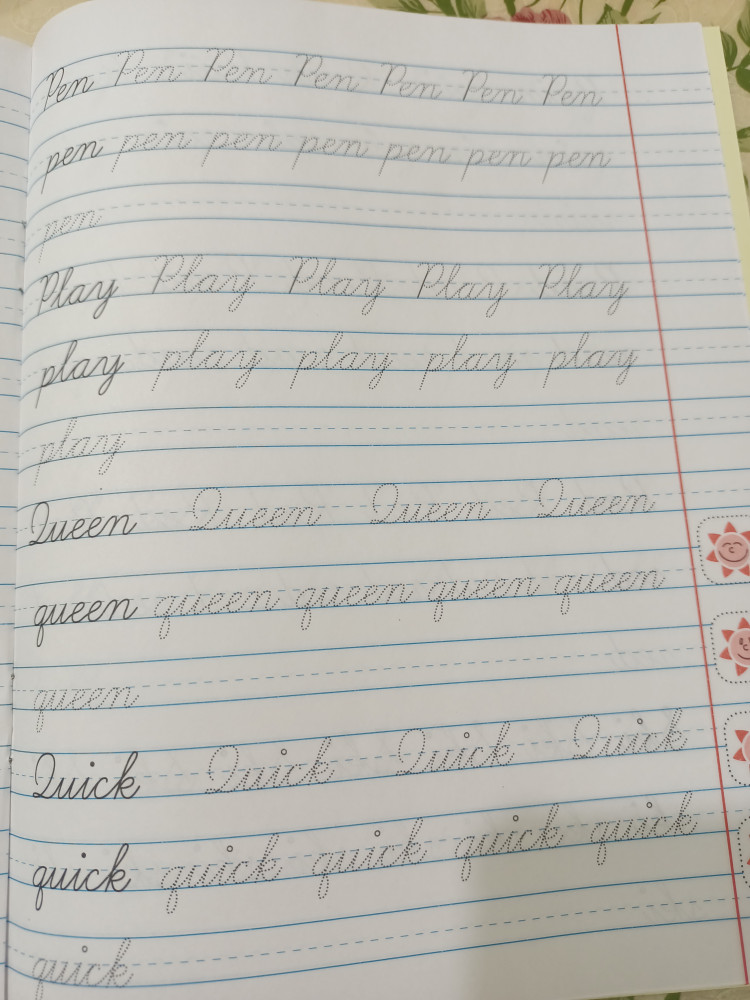 Pen Pen Pen Pen Pen Pen Pen
pen pen pen pen pen pen pen
pen
Play Play Play Play Play
play play play play play
play
Queen Queen Queen Queen
queen queen queen queen queen
queen
Quick Quick Quick Quick
quick quick quick quick quick
quick